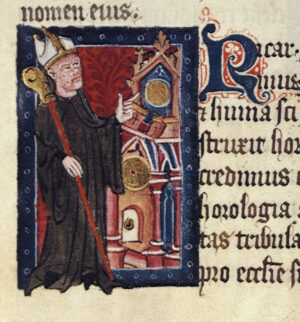 nomen eius.
Ricar-
dinus
& huma sci
struxit hor
credimus
horologia
tas tribula
pro eccl̄e s